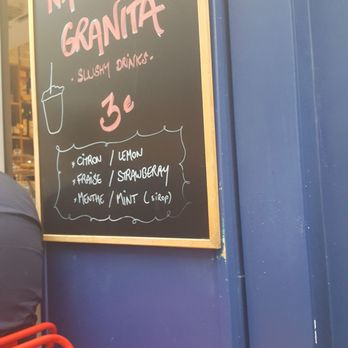 GRANITA
- SLUSHY DRINKS -
3€
* CITRON / LEMON
* FRAISE / STRAWBERAY
* MENTHE / MINT (sirop)